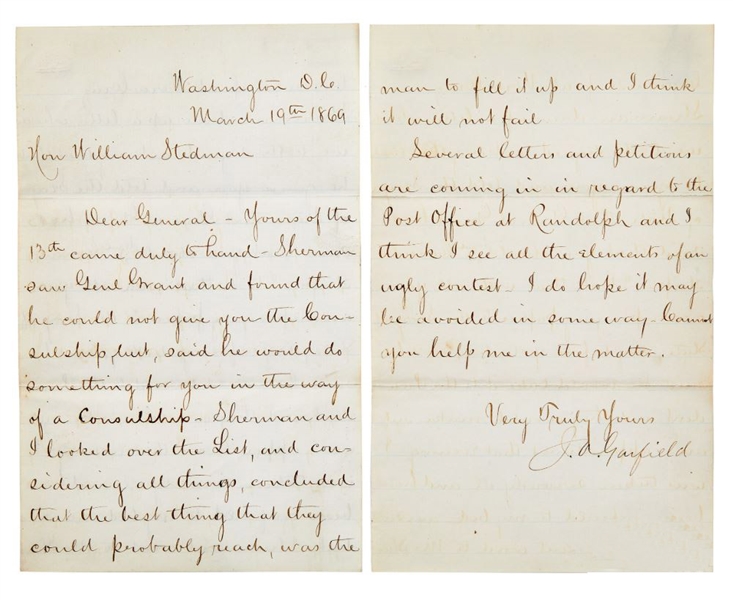 Washington D.C.
March 19th 1869
Hon William Stedman
Dear General - Yours of the
13th came duly to hand - Sherman
saw Genl Grant and found that
he could not give you the Con-
sulship, but, said he would do
something for you in the way
of a Consulship - Sherman and
I looked over the List, and con-
sidering all things, concluded
that the best thing that they
could probably reach, was the
man to fill it up and I think
it will not fail
Several letters and petitions
are coming in in regard to the
Post Office at Randolph and I
think I see all the elements of an
ugly contest - I do hope it may
be avoided in some way - Cannot
you help me in the matter.
Very Truly Yours
J. A. Garfield